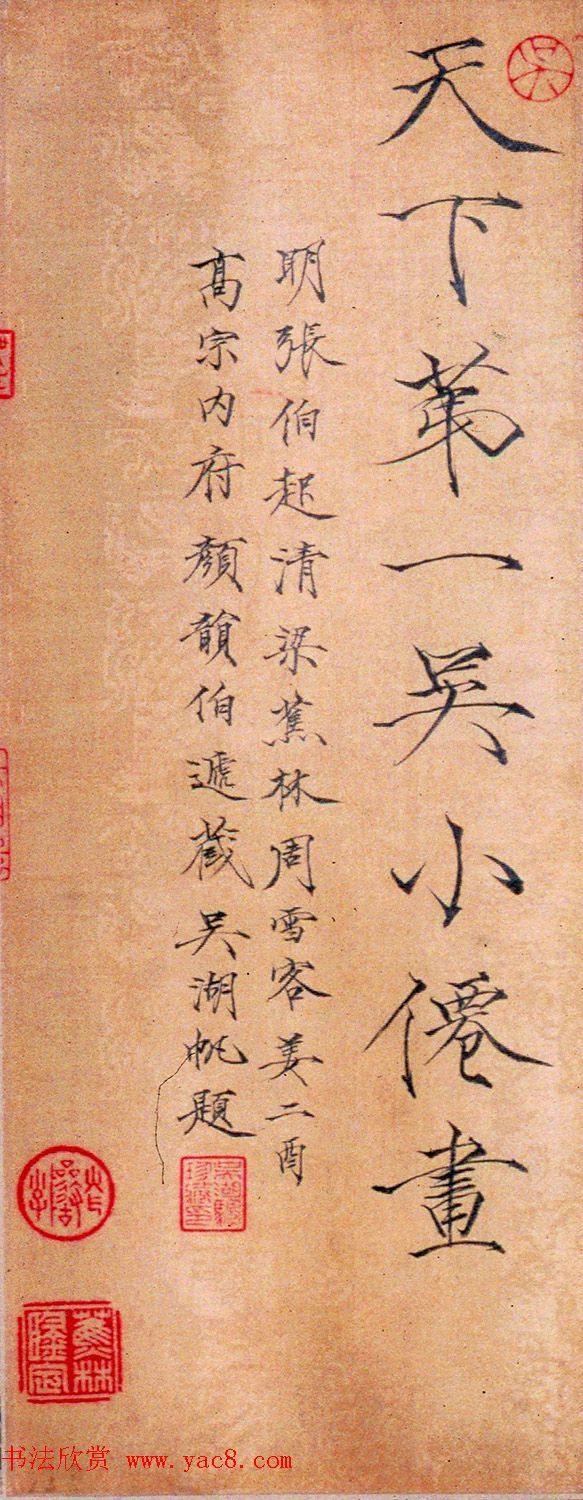 天下苐一吴小僊畫
明張伯起清梁蕉林周雪客姜二酉
髙宗内府顏韻伯遞藏吴湖帆題
吴
蕉林
書法欣赏 www.yac8.com